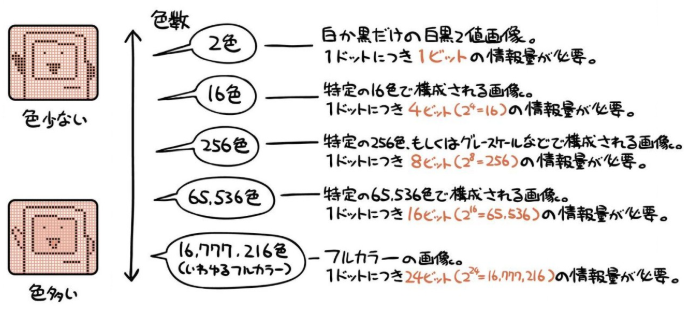 色数
2色
白か黒だけの白黒2値画像。
1ドットにつき1ビットの情報量が必要。
16色
特定の16色で構成される画像。
1ドットにつき4ビット(2⁴=16)の情報量が必要。
色少ない
256色
特定の256色、もしくはグレースケールなどで構成される画像。
1ドットにつき8ビット(2⁸=256)の情報量が必要。
65,536色
特定の65,536色で構成される画像。
1ドットにつき16ビット(2¹⁶=65,536)の情報量が必要。
16,777,216色
(いわゆるフルカラー)
フルカラーの画像。
1ドットにつき24ビット(2²⁴=16,777,216)の情報量が必要。
色多い